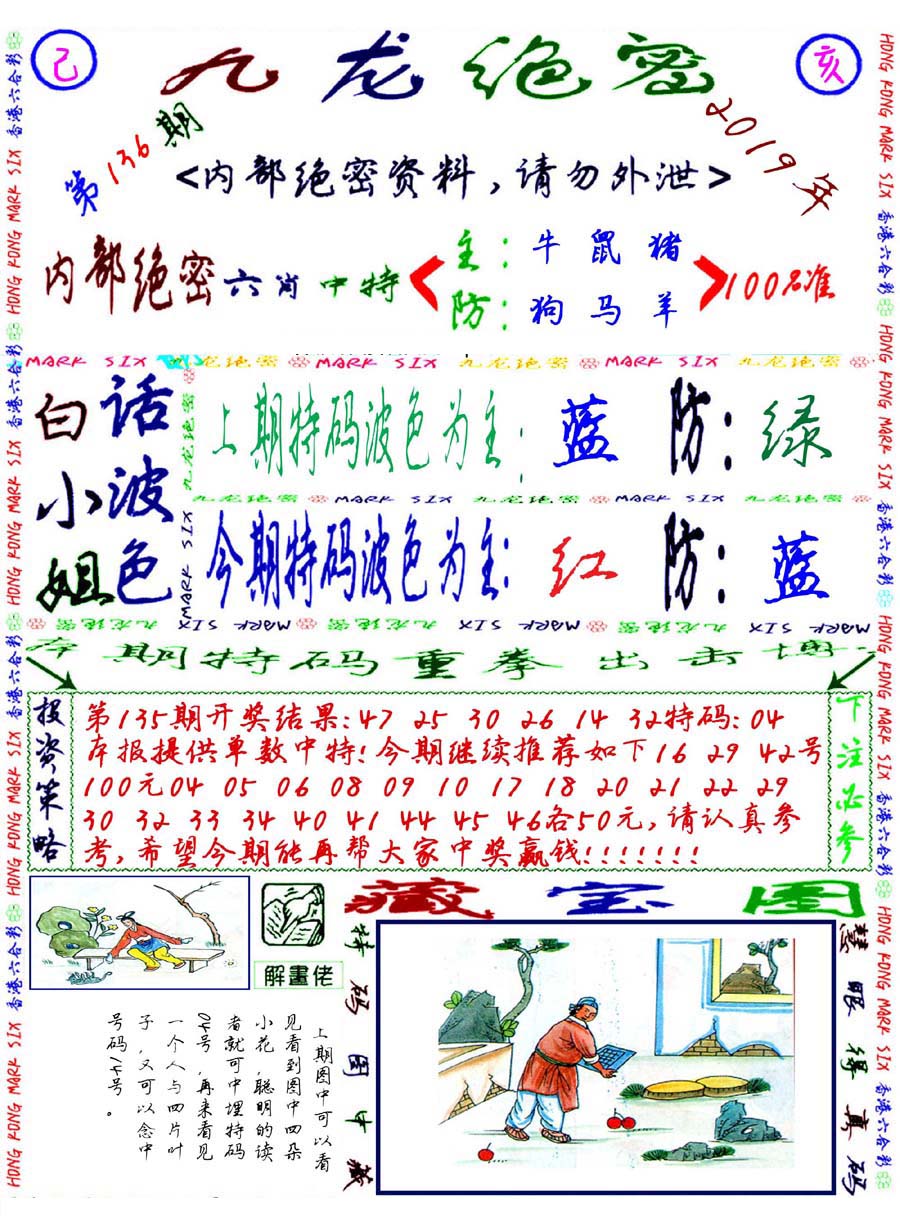 己
九龙绝密
亥
第136期
2019年
<内部绝密资料，请勿外泄>
内部绝密六肖中特
主：牛 鼠 猪
防：狗 马 羊
100%准
MARK SIX 九龙绝密 MARK SIX 九龙绝密 MARK SIX 九龙绝密
白小姐
话波色
九龙绝密 MARK SIX
上期特码波色为主：蓝 防：绿
九龙绝密 MARK SIX 九龙绝密 MARK SIX 九龙绝密
今期特码波色为主：红 防：蓝
MARK SIX 九龙绝密 MARK SIX 九龙绝密 MARK SIX 九龙绝密
期特码重拳出击博
投资策略
第135期开奖结果：47 25 30 26 14 32特码：04
本报提供单数中特！今期继续推荐如下16 29 42号
100元04 05 06 08 09 10 17 18 20 21 22 29
30 32 33 34 40 41 44 45 46各50元，请认真参
考，希望今期能再帮大家中奖赢钱！！！！！！！
下注必参
藏宝图
解畫佬
特码图中藏
慧眼得真码
上期图中可以看
见看到图中四朵
小花，聪明的读
者就可中埋特码
04号，再来看见
一个人与四片叶
子，又可以念中
号码14号。
HONG KONG MARK SIX 香港六合彩 HONG KONG MARK SIX 香港六合彩 HONG KONG MARK SIX 香港六合彩 HONG KONG MARK SIX 香港六合彩
HONG KONG MARK SIX 香港六合彩 HONG KONG MARK SIX 香港六合彩 HONG KONG MARK SIX 香港六合彩 HONG KONG MARK SIX 香港六合彩